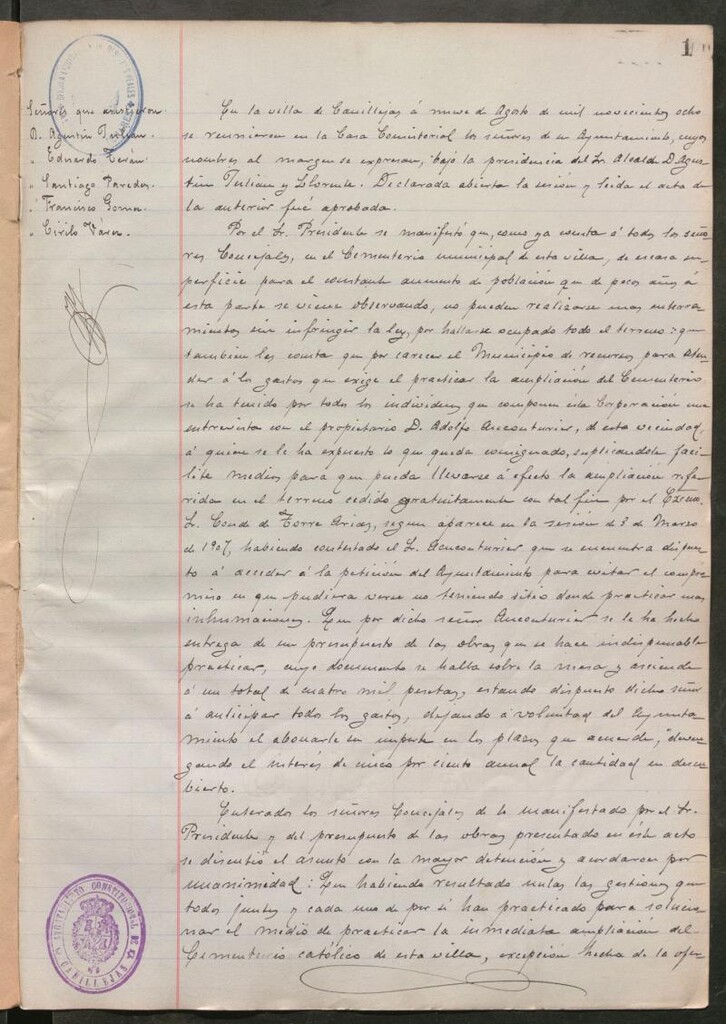 1
Señores que asistieron.
D. Agustín Julian.
" Eduardo Terán.
" Santiago Paredes.
" Francisco Goma.
" Cirilo Vára.
En la villa de Canillejas á nueve de Agosto de mil novecientos ocho
se reunieron en la Casa Consistorial los señores de su Ayuntamiento, cuyos
nombres al margen se expresan, bajo la presidencia del Sr. Alcalde D. Agus-
tin Julian y Llorente. Declarada abierta la sesión y leida el acta de
la anterior fué aprobada.
Por el Sr. Presidente se manifestó que, como ya consta á todos los seño-
res Concejales, en el Cementerio municipal de esta villa, de escasa su-
perficie para el constante aumento de población que de pocos años á
esta parte se viene observando, no pueden realizarse mas enterra-
mientos sin infringir la ley, por hallarse ocupado todo el terreno: que
tambien les consta que por carecer el Municipio de recursos para aten-
der á los gastos que exige el practicar la ampliación del Cementerio,
se ha tenido por todos los individuos que componen esta Corporación una
entrevista con el propietario D. Adolfo Aucouturier, de esta vecindad,
á quien se le ha expuesto lo que queda consignado, suplicandole faci-
lite medios para que pueda llevarse á efecto la ampliación refe-
rida en el terreno cedido gratuitamente con tal fin por el Excmo.
Sr. Conde de Torre Arias, segun aparece en la sesión de 3 de Marzo
de 1907, habiendo contestado el Sr. Aucouturier que se encuentra dispues-
to á acceder á la petición del Ayuntamiento para evitar el compro-
miso en que pudiera verse no teniendo sitio donde practicar mas
inhumaciones. Que por dicho señor Aucouturier se le ha hecho
entrega de un presupuesto de las obras que se hace indispensable
practicar, cuyo documento se halla sobre la mesa y asciende
á un total de cuatro mil pesetas, estando dispuesto dicho señor
á anticipar todos los gastos, dejando á voluntad del Ayunta-
miento el abonarle su importe en los plazos que acuerde, deven-
gando el interés de cinco por ciento anual la cantidad en descu-
bierto.
Enterados los señores Concejales de lo manifestado por el Sr.
Presidente y del presupuesto de las obras presentado en este acto
se discutió el asunto con la mayor detención y acordaron por
unanimidad: Que habiendo resultado nulas las gestiones que
todos juntos y cada uno de por sí han practicado para solucio-
nar el medio de practicar la inmediata ampliación del
Cementerio católico de esta villa, excepción hecha de la ofer-
AYUNTAMIENTO CONSTITUCIONAL DE LA
CANILLEJAS